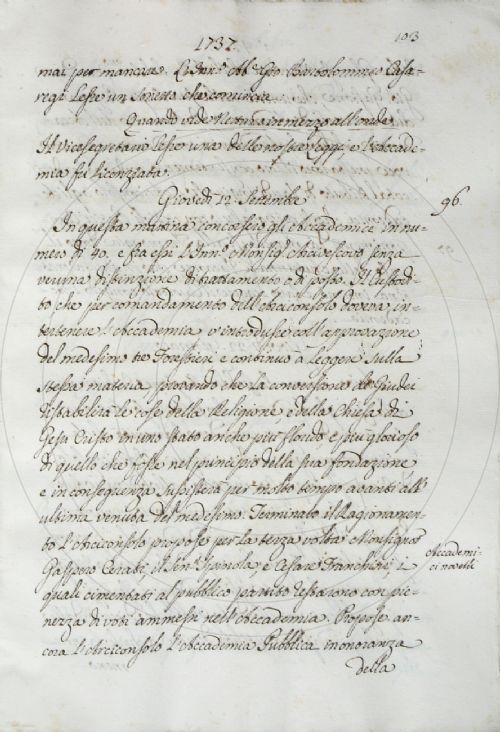 1737.
103
mai per mancia. L'Inn: Ab: Gio: Bartolommeo Casa-
regi Lesse un Sonetto che comincia
Quando vede Neonra in mezzo all'onde
Il Vicesegretario Lesse una delle nostre Leggi, e L'Accade-
mia fu licenziata.
Giovedì 12. Settembre
96.
In questa mattina concorsero gli Accademici in nu-
mero di 40. e fra essi l'Inn: Monsig: Arcivescovo senza
veruna distinzione di trattamento o di posto. Il Custodi-
to che per comandamento dell'Arciconsolo doveva in-
tertenere l'Accademia v'introdusse coll'approvazione
del medesimo tre Forestieri e continuò a Leggere sulla
stessa materia provando che La conversione de Giudei
ristabilirà Le cose della Religione, e della Chiesa di
Gesù Cristo in uno stato anche più florido e più glorioso
di quello che fosse nel principio della sua fondazione
e in conseguenza sussisterà per molto tempo avanti all'
ultima venuta del medesimo. Terminato il Ragionamen-
to L'Arciconsolo propose per la terza volta Monsignor
Accademi-
ci novelli
Gaspero Cerati, il Sen: Ginola e Cesare Franchini, i
quali cimentati al pubblico partito restarono con pie-
nezza di voti ammessi nell'Accademia. Propose an-
cora L'Arciconsolo L'Accademia Pubblica in onoranza
della